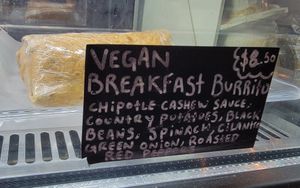 VEGAN {$8.50
BREAKFAST BURRITO
CHIPOTLE CASHEW SAUCE,
COUNTRY POTATOES, BLACK
BEANS, SPINACH, CILANTRO
GREEN ONION, ROASTED
RED PEPPERS